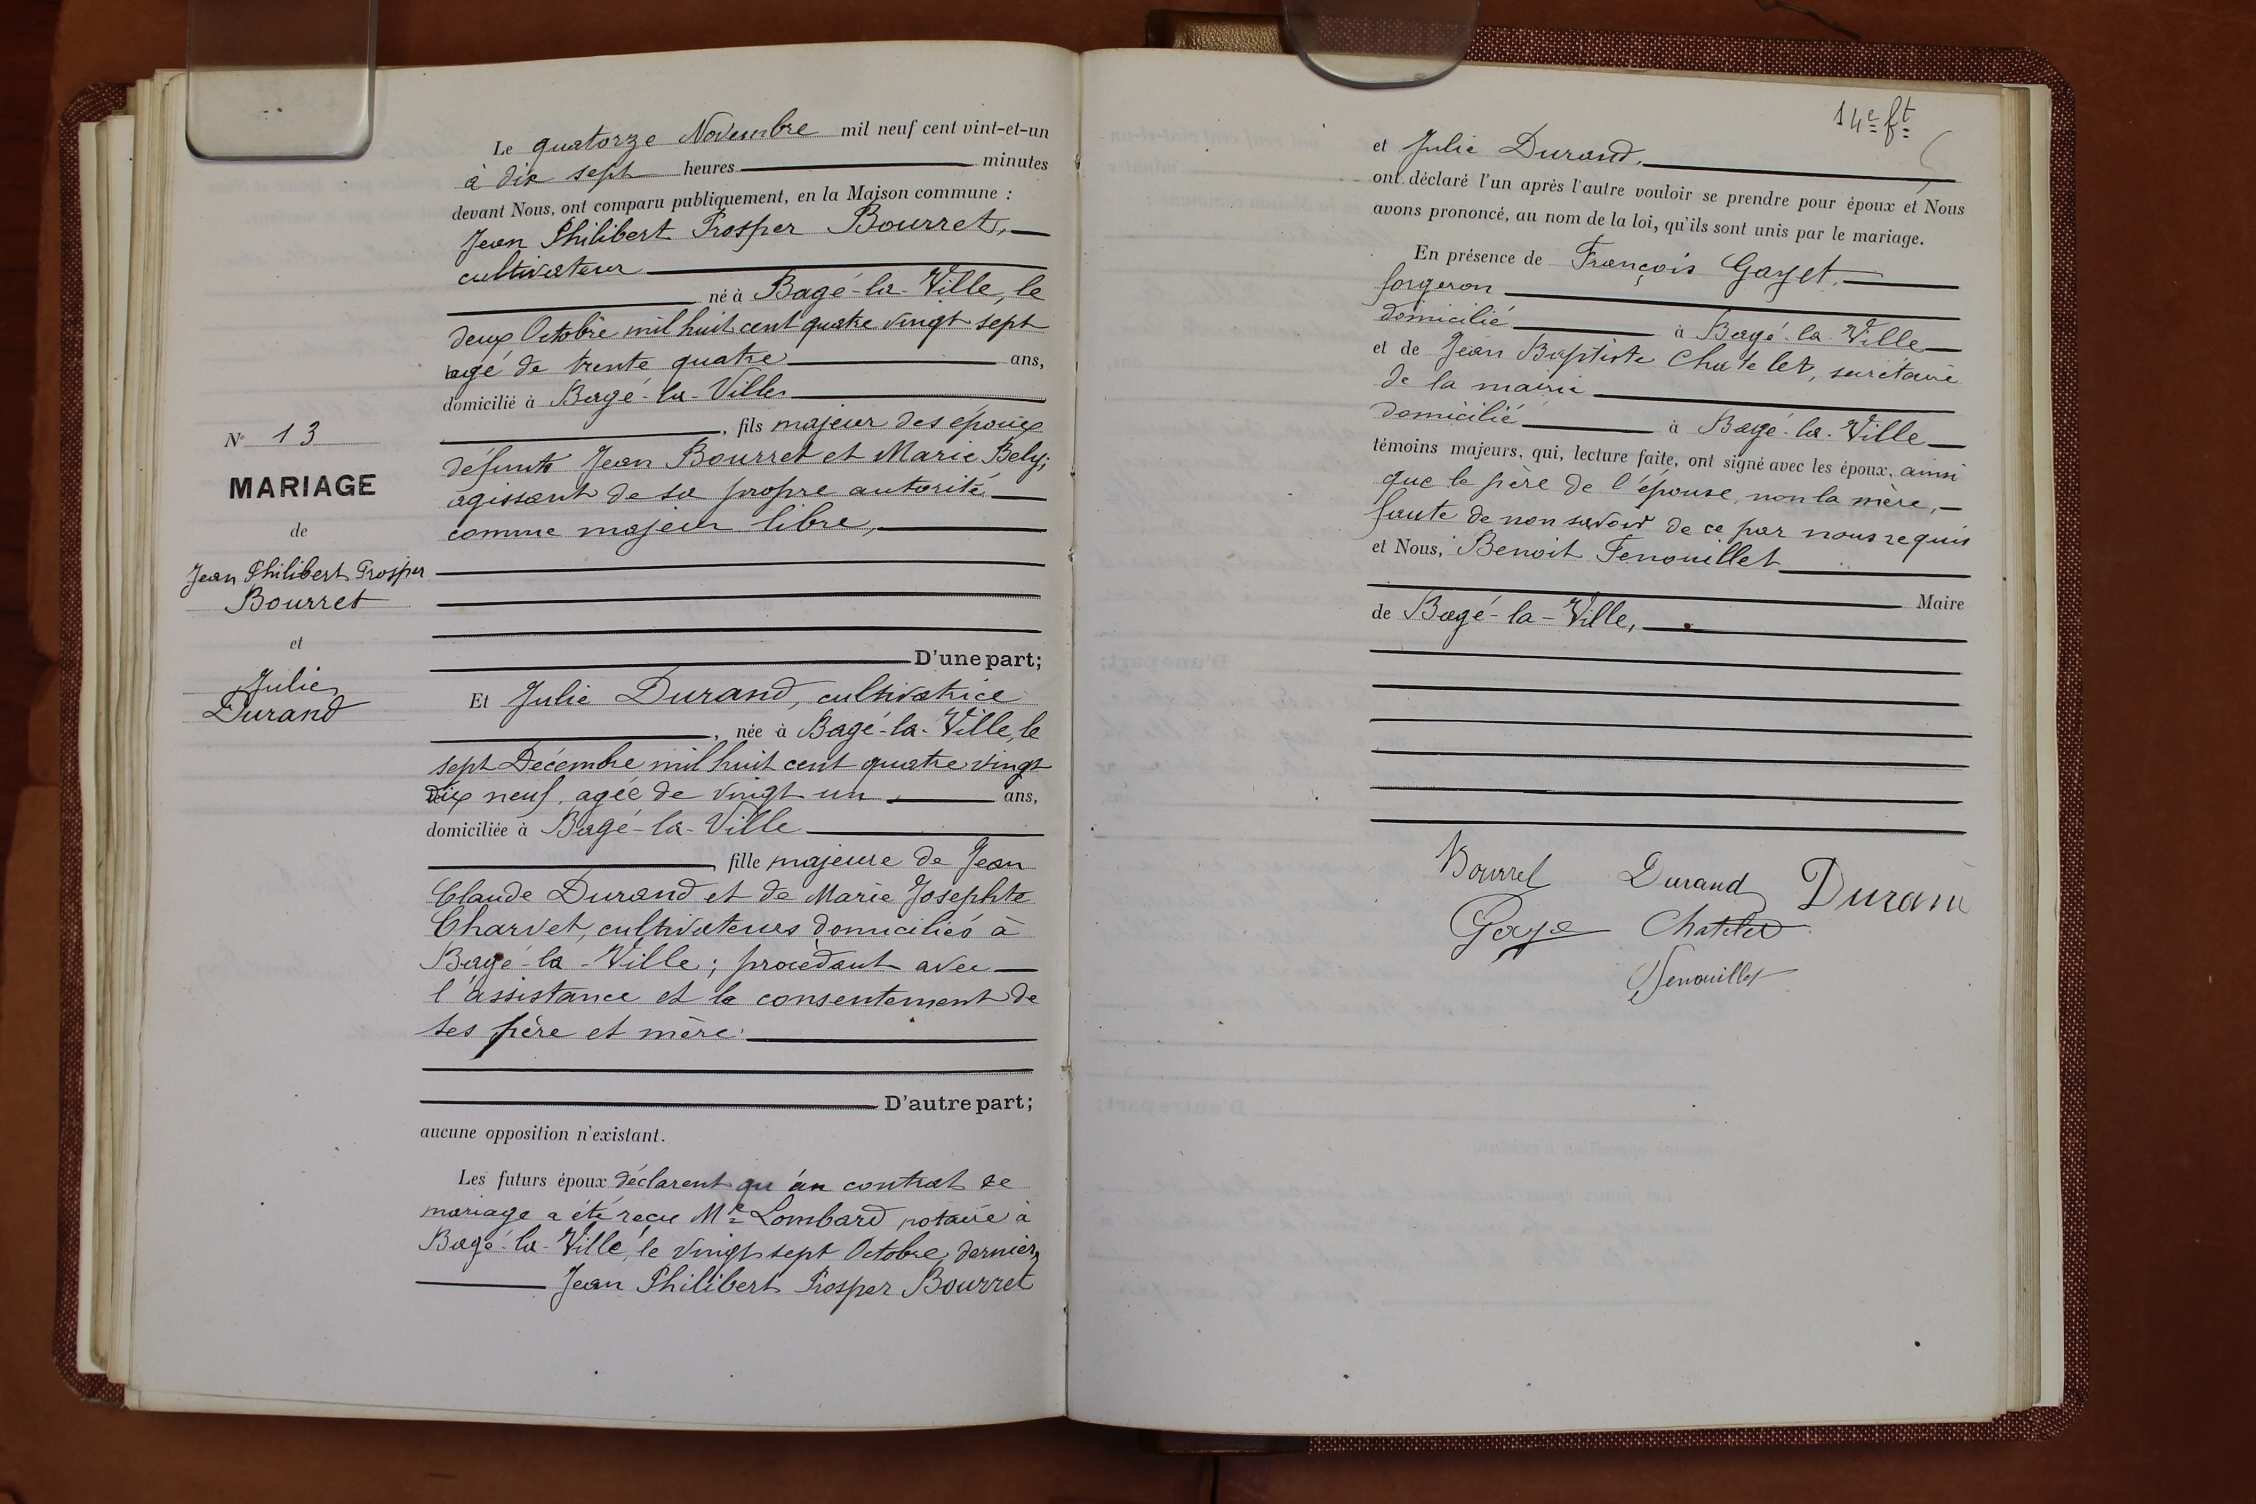 Le quatorze Novembre mil neuf cent vint-et-un
à dix sept heures minutes
devant Nous, ont comparu publiquement, en la Maison commune :
Jean Philibert Prosper Bourret,
cultivateur
né à Bagé-la-Ville, le
deux Octobre mil huit cent quatre vingt sept
agé de trente quatre ans,
domicilié à Bagé-la-Ville
, fils majeur des époux
défunts Jean Bourret et Marie Bely;
agissant de sa propre autorité
comme majeur libre,
D'une part;
Et Julie Durand, cultivatrice
, née à Bagé-la-Ville, le
sept Décembre mil huit cent quatre vingt
dix neuf, agée de vingt un ans,
domiciliée à Bagé-la-Ville
, fille majeure de Jean
Claude Durand et de Marie Josephte
Charvet, cultivateurs domiciliés à
Bagé-la-Ville; procédant avec
l'assistance et le consentement de
ses père et mère.
D'autre part;
aucune opposition n'existant.
Les futurs époux déclarent qu'un contrat de
mariage a été reçu Me Lombard notaire à
Bagé-la-Ville, le vingt sept Octobre dernier,
Jean Philibert Prosper Bourret
No 13
MARIAGE
de
Jean Philibert Prosper
Bourret
et
Julie
Durand
14e ft
et Julie Durand,
ont déclaré l'un après l'autre vouloir se prendre pour époux et Nous
avons prononcé, au nom de la loi, qu'ils sont unis par le mariage.
En présence de François Gayet,
forgeron
domicilié à Bagé-la-Ville
et de Jean Baptiste Chatelet, secrétaire
de la mairie
domicilié à Bagé-la-Ville
témoins majeurs, qui, lecture faite, ont signé avec les époux, ainsi
que le père de l'épouse, non la mère,
faute de non savoir de ce par nous requis
et Nous, Benoit Fenouillet
Maire
de Bagé-la-Ville,
Bourret Durand Durand
Gaye Chatelet
Fenouillet